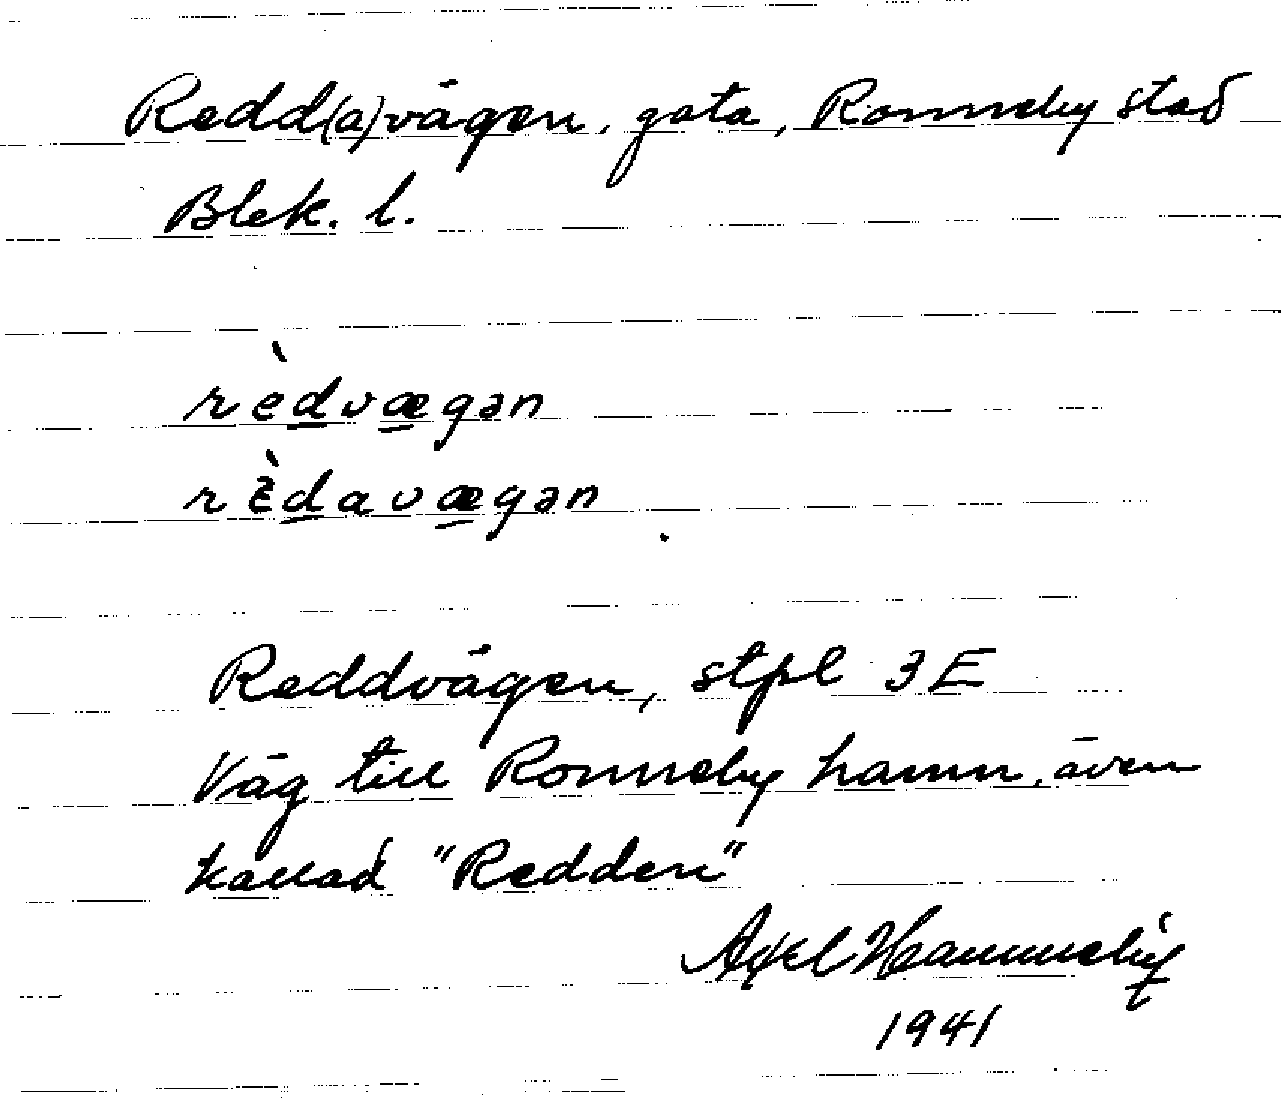 Redd(a)vägen, gata, Ronneby stad
Blek. l.
rèd̲væ̲gən
rɛ̀d̲avæ̲gən
Reddvägen, stpl 3E
Väg till Ronneby hamn, även
kallad "Redden"
Axel Hammeby
1941